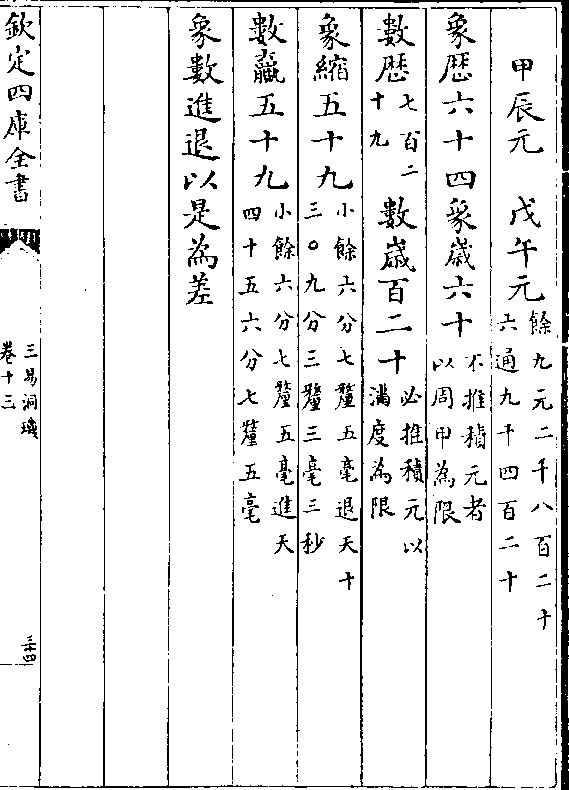 甲辰元　戊午元餘九元二千八百二十六通九千四百二十
象歴六十四象嵗六十不推積元者以周甲為限
數歴七百二十九數嵗百二十必推積元以滿度為限
象縮五十九小餘六分七釐五毫退天十三〇九分三釐三毫三秒
數贏五十九小餘六分七釐五毫進天四十五六分七釐五毫
象數進退以是為差
欽定四庫全書
三易洞璣
卷十三
三十四